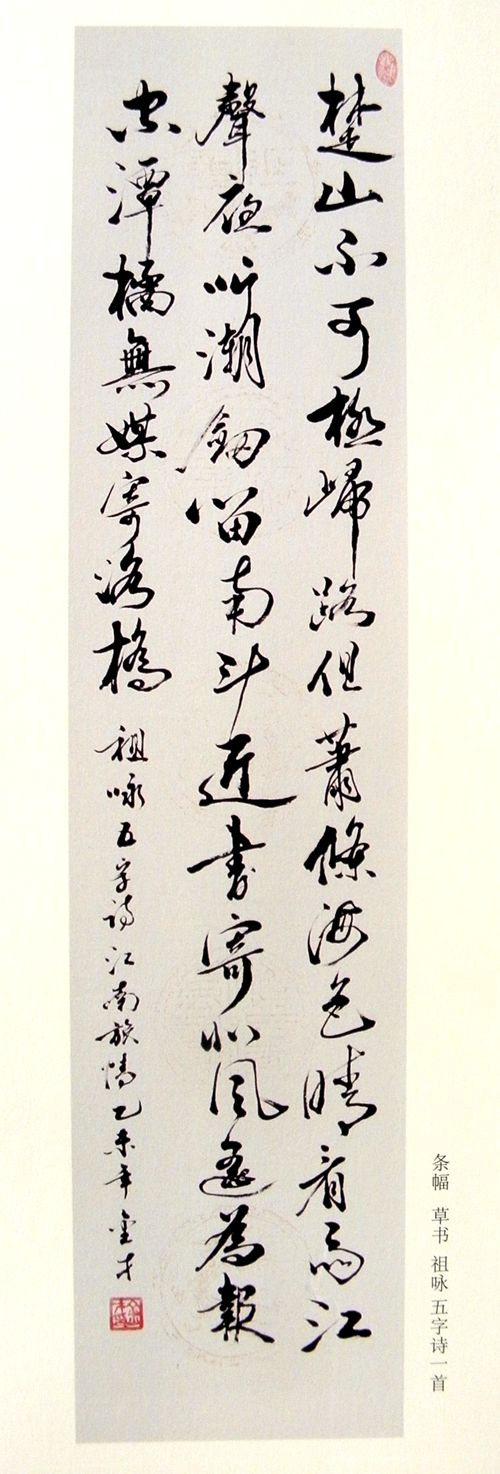 楚山不可極歸路但蕭條海色晴看雨江
聲夜听潮劍留南斗近書寄北風遙為報
空潭橘無媒寄洛橋 祖咏五字诗江南旅情乙未年金才
条幅 草书 祖咏 五字诗一首